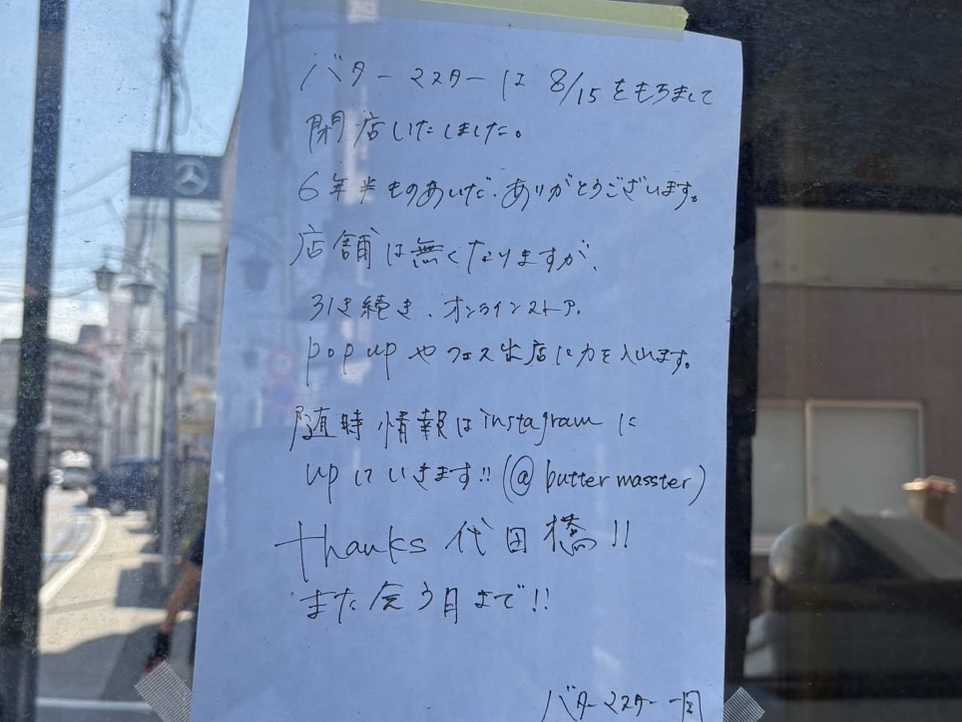 バターマスターは 8/15をもちまして
閉店いたしました。
6年半ものあいだ、ありがとうございます。
店舗は無くなりますが、
引き続き、オンラインストア、
pop upやフェス出店に力を入れます。
随時情報はinstagramに
upしていきます!! (@buttermasster)
thanks 代田橋!!
また会う日まで!!
バターマスター 一同